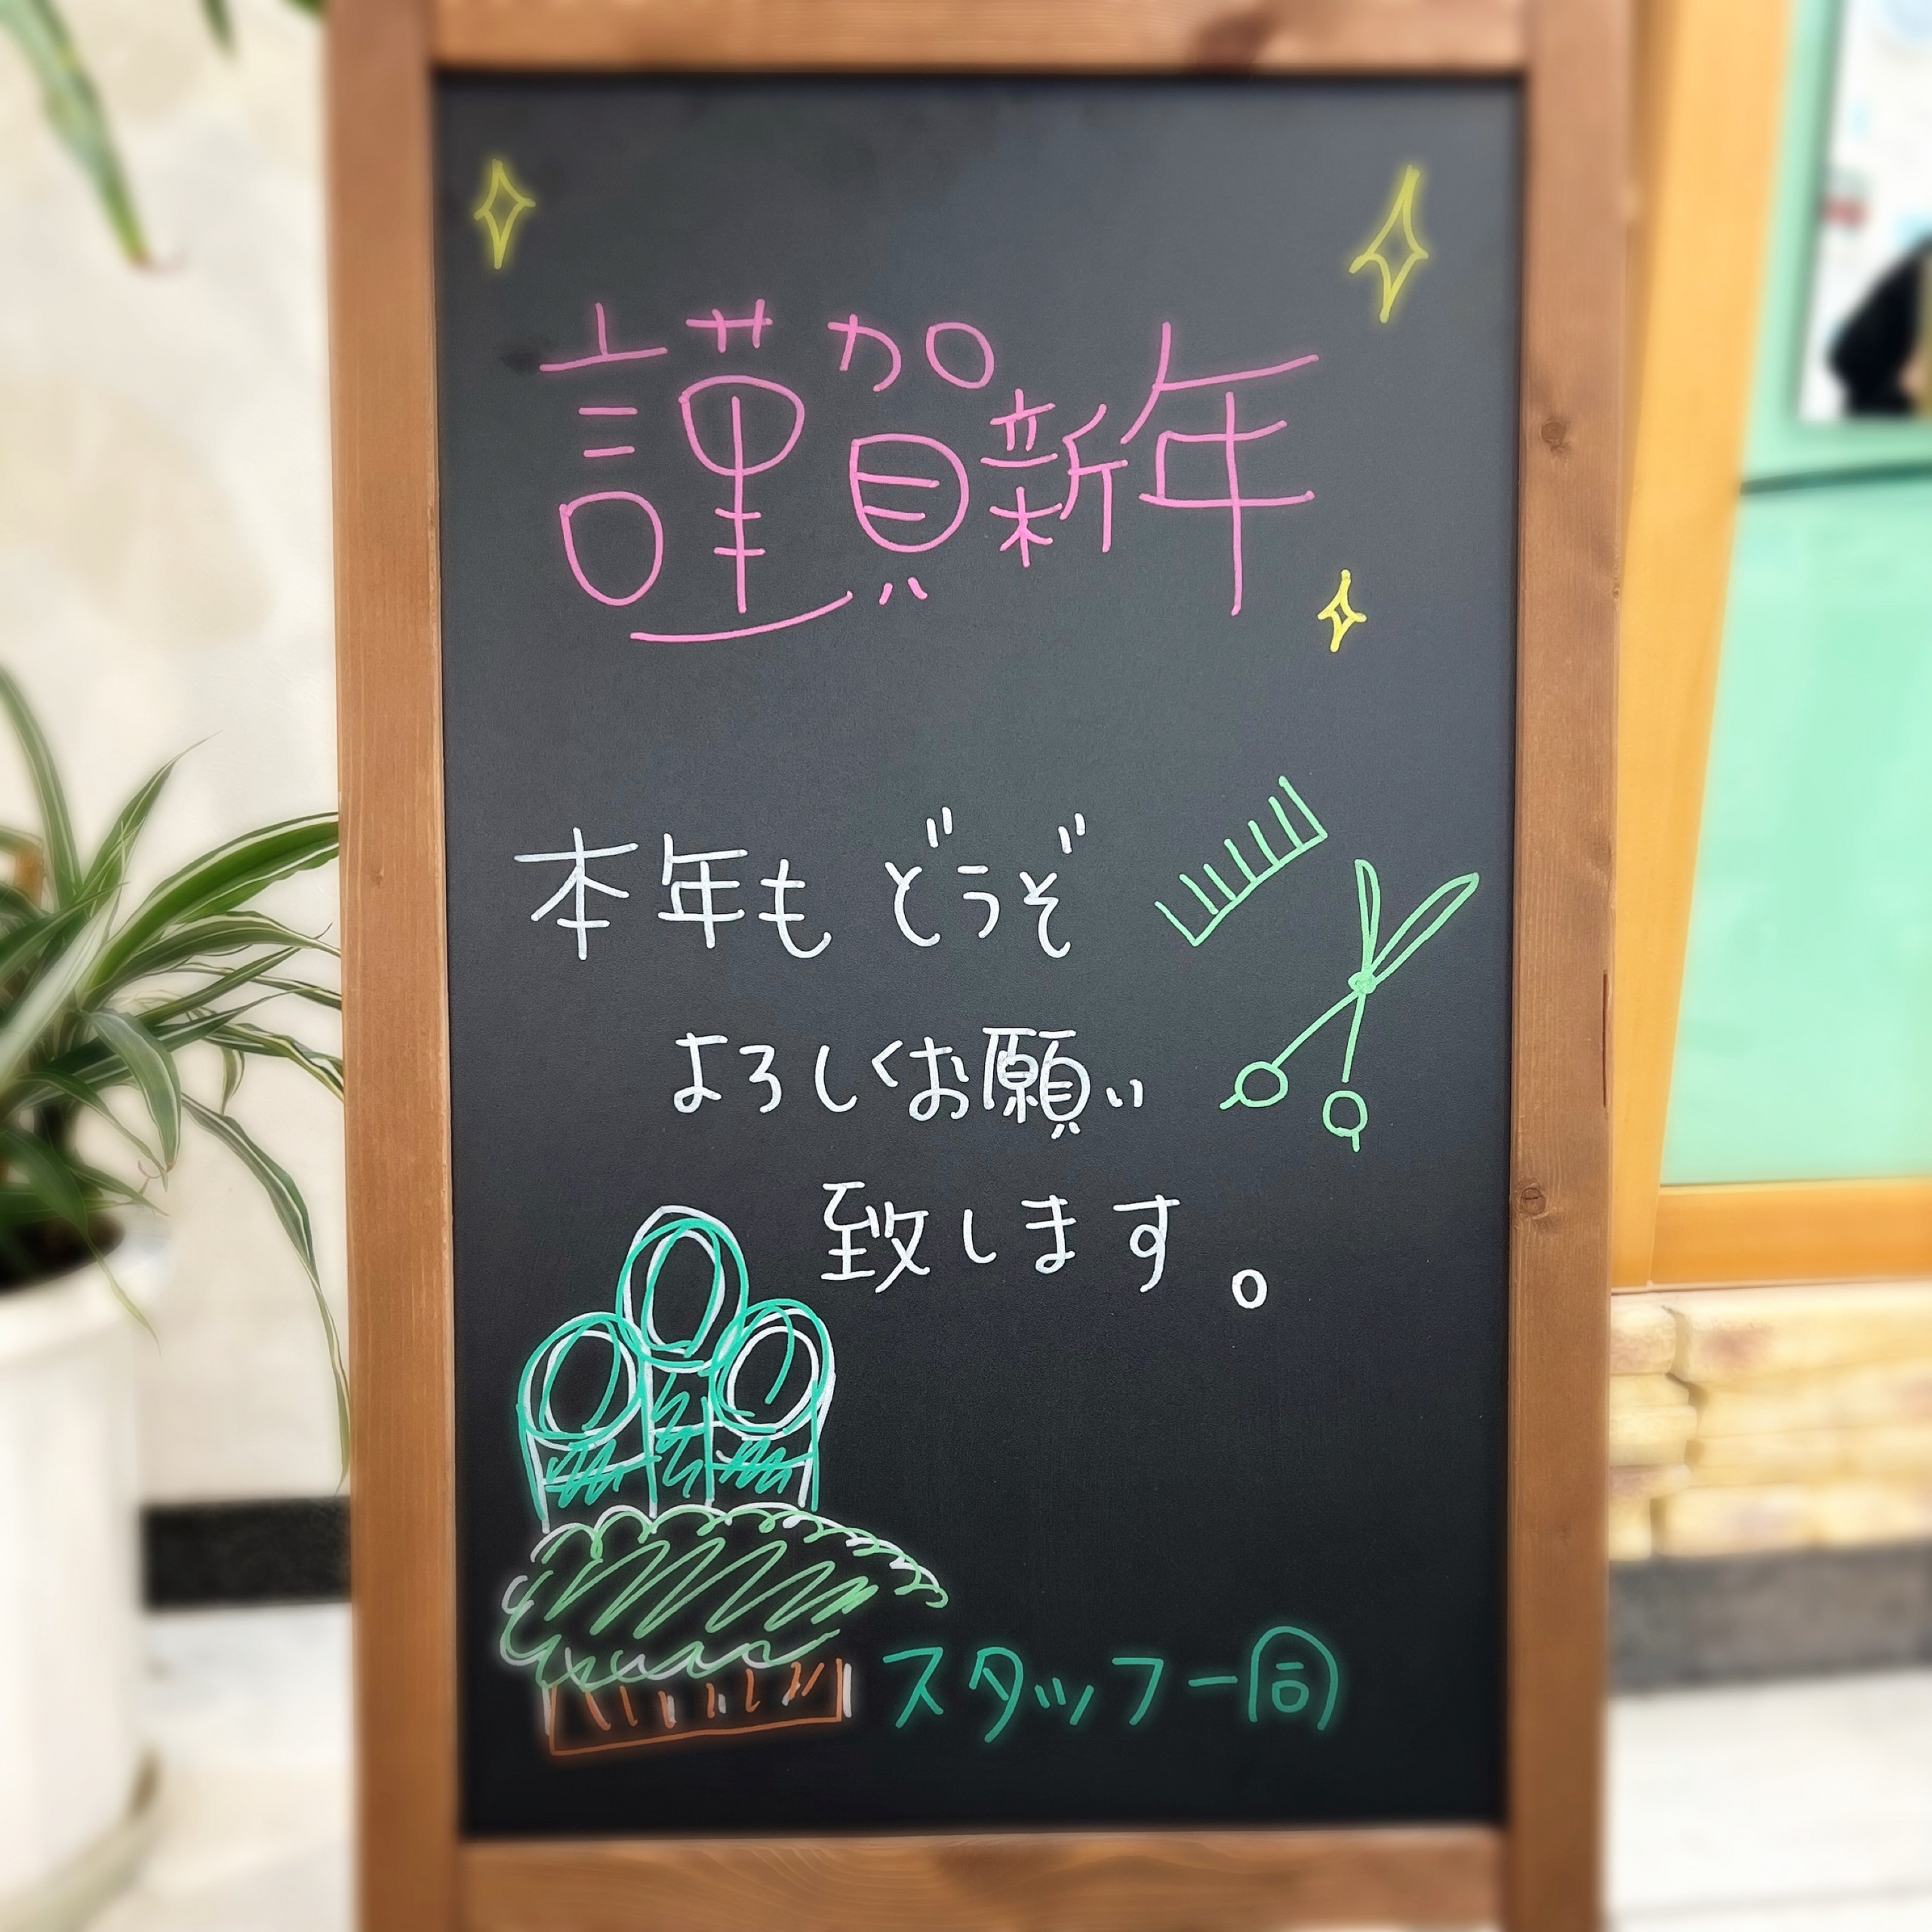 謹賀新年
本年もどうぞ
よろしくお願い
致します。
スタッフ一同